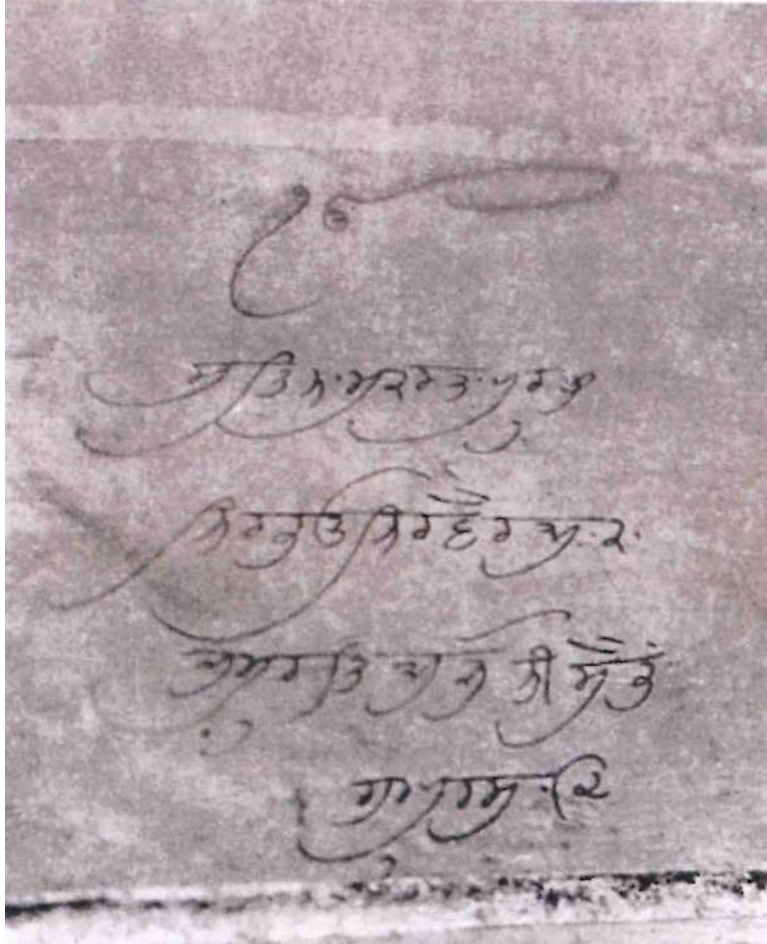 ੴ
ਸਤਿਨਾਮੁ ਕਰਤਾ ਪੁਰਖੁ
ਨਿਰਭਉ ਨਿਰਵੈਰੁ ਅਕਾ
ਲ ਮੂਰਤਿ ਅਜੂਨੀ ਸੈਭੰ
ਗੁਰਪ੍ਰਸਾਦਿ